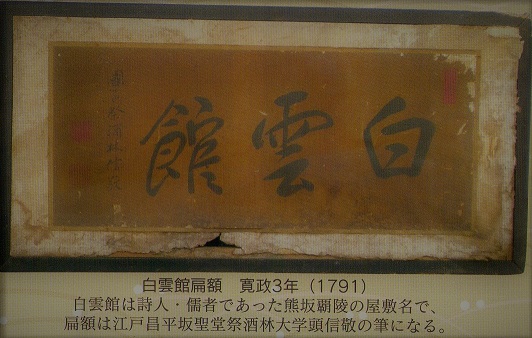 白雲館
白雲館扁額　寛政3年（1791）
白雲館は詩人・儒者であった熊坂覇陵の屋敷名で、
扁額は江戸昌平坂聖堂祭酒林大学頭信敬の筆になる。